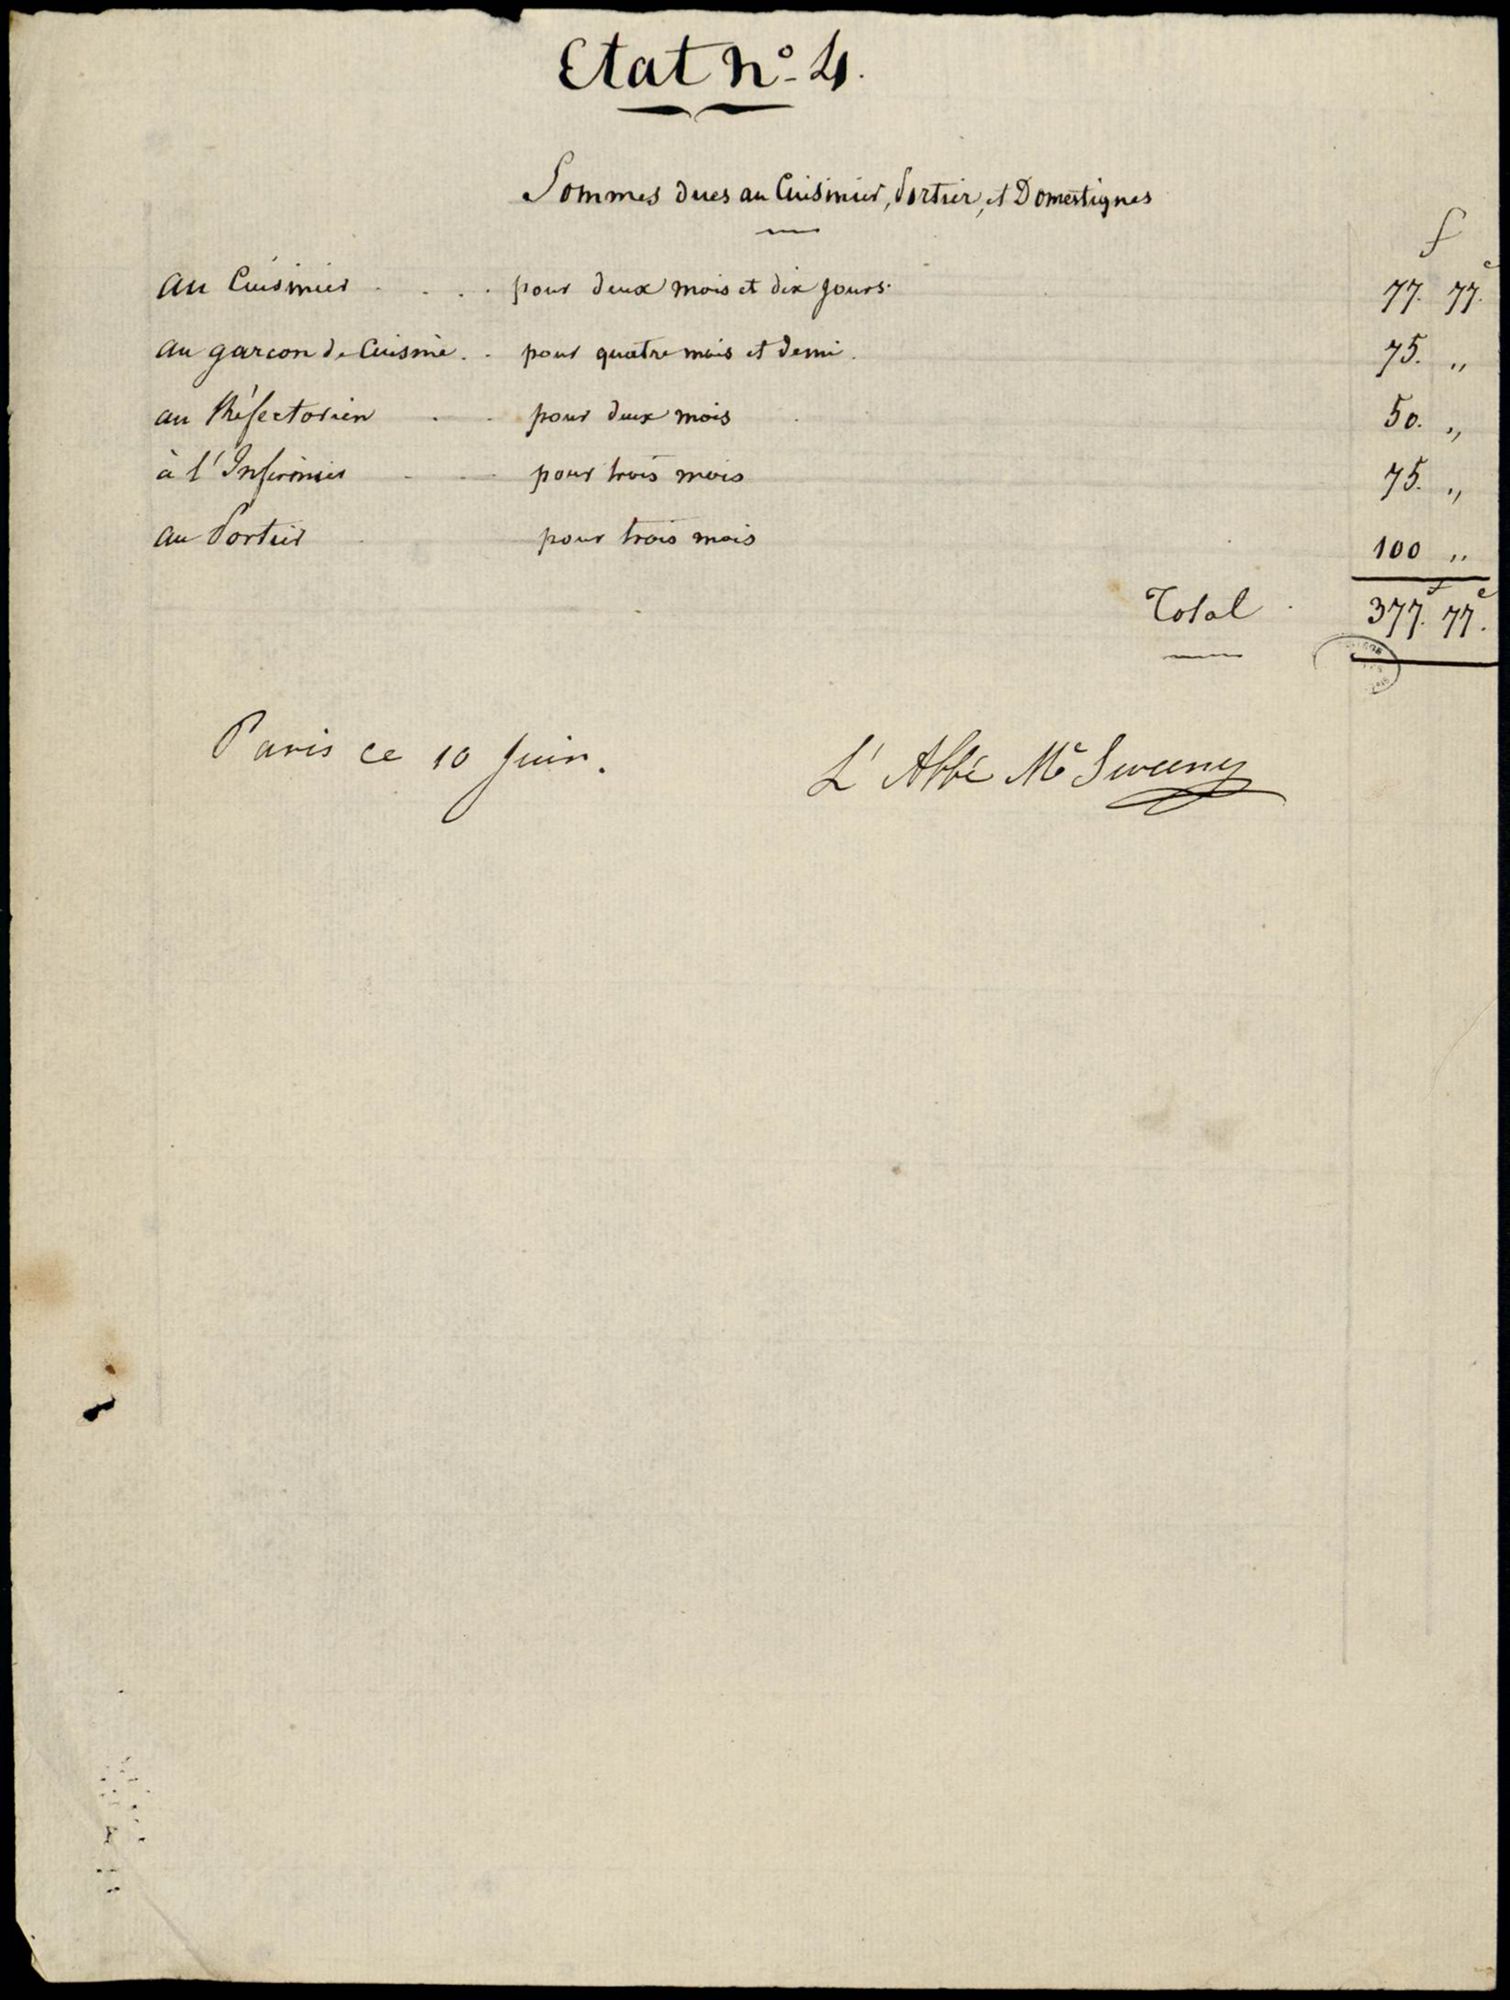 Etat no. 4.
Sommes dues au Cuisinier, Portier, et Domestiques
f
au Cuisinier . . . . pour deux mois et dix jours. 77. 77.c
au garcon de Cuisine . . pour quatre mois et demi. 75. "
au Réfectorien . . pour deux mois . 50. "
à l'Infirmier . . pour trois mois 75. "
au Portier . pour trois mois 100 "
Total . 377.f 77.c
Paris ce 10 Juin.
L'Abbé Mc Sweeny